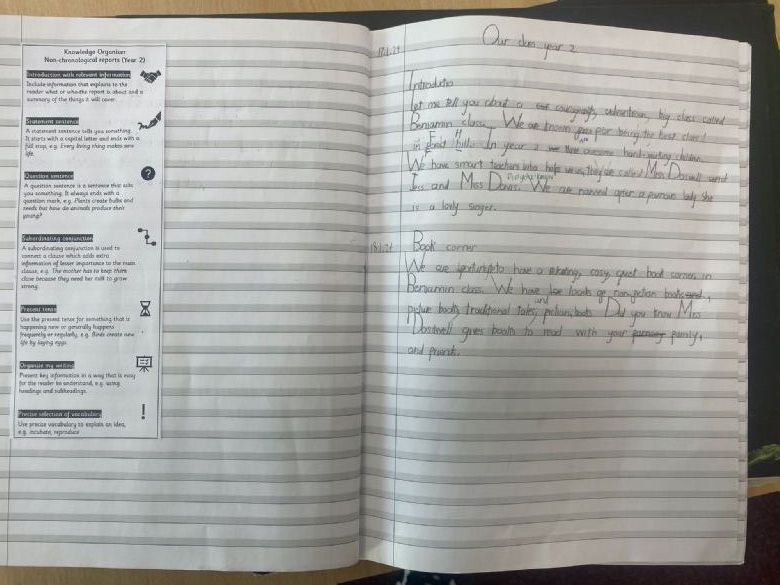 Knowledge Organiser
Non-chronological reports (Year 2)
Introduction with relevant information
Include information that explains to the
reader what or who the report is about and a
summary of the things it will cover.
Statement sentence
A statement sentence tells you something.
It starts with a capital letter and ends with a
full stop, e.g. Every living thing makes new
life.
Question sentence
A question sentence is a sentence that asks
you something. It always ends with a
question mark, e.g. Plants create bulbs and
seeds but how do animals produce their
young?
Subordinating conjunction
A subordinating conjunction is used to
connect a clause which adds extra
information of lesser importance to the main
clause, e.g. The mother has to keep them
close because they need her milk to grow
strong.
Present tense
Use the present tense for something that is
happening now or generally happens
frequently or regularly, e.g. Birds create new
life by laying eggs.
Organise my writing
Present key information in a way that is easy
for the reader to understand, e.g. using
headings and subheadings.
Precise selection of vocabulary
Use precise vocabulary to explain an idea,
e.g. incubate, reproduce
Our class year 2
Let me tell you about a big class called
Benjamin class. We are known for being the best class
in Hills. In year 2 we have awesome hard-working children.
We have smart teachers who help us, they are called Mrs and
and Miss Davis. We are named after a famous lady she
is a lovly singer.
Book corner
We are to have a cosy, quiet book corner in
Benjamin class. We have loads of non-fiction books,
picture books, traditional tales, and fiction books. Did you know Mrs
gives books to read with your family,
and friends.